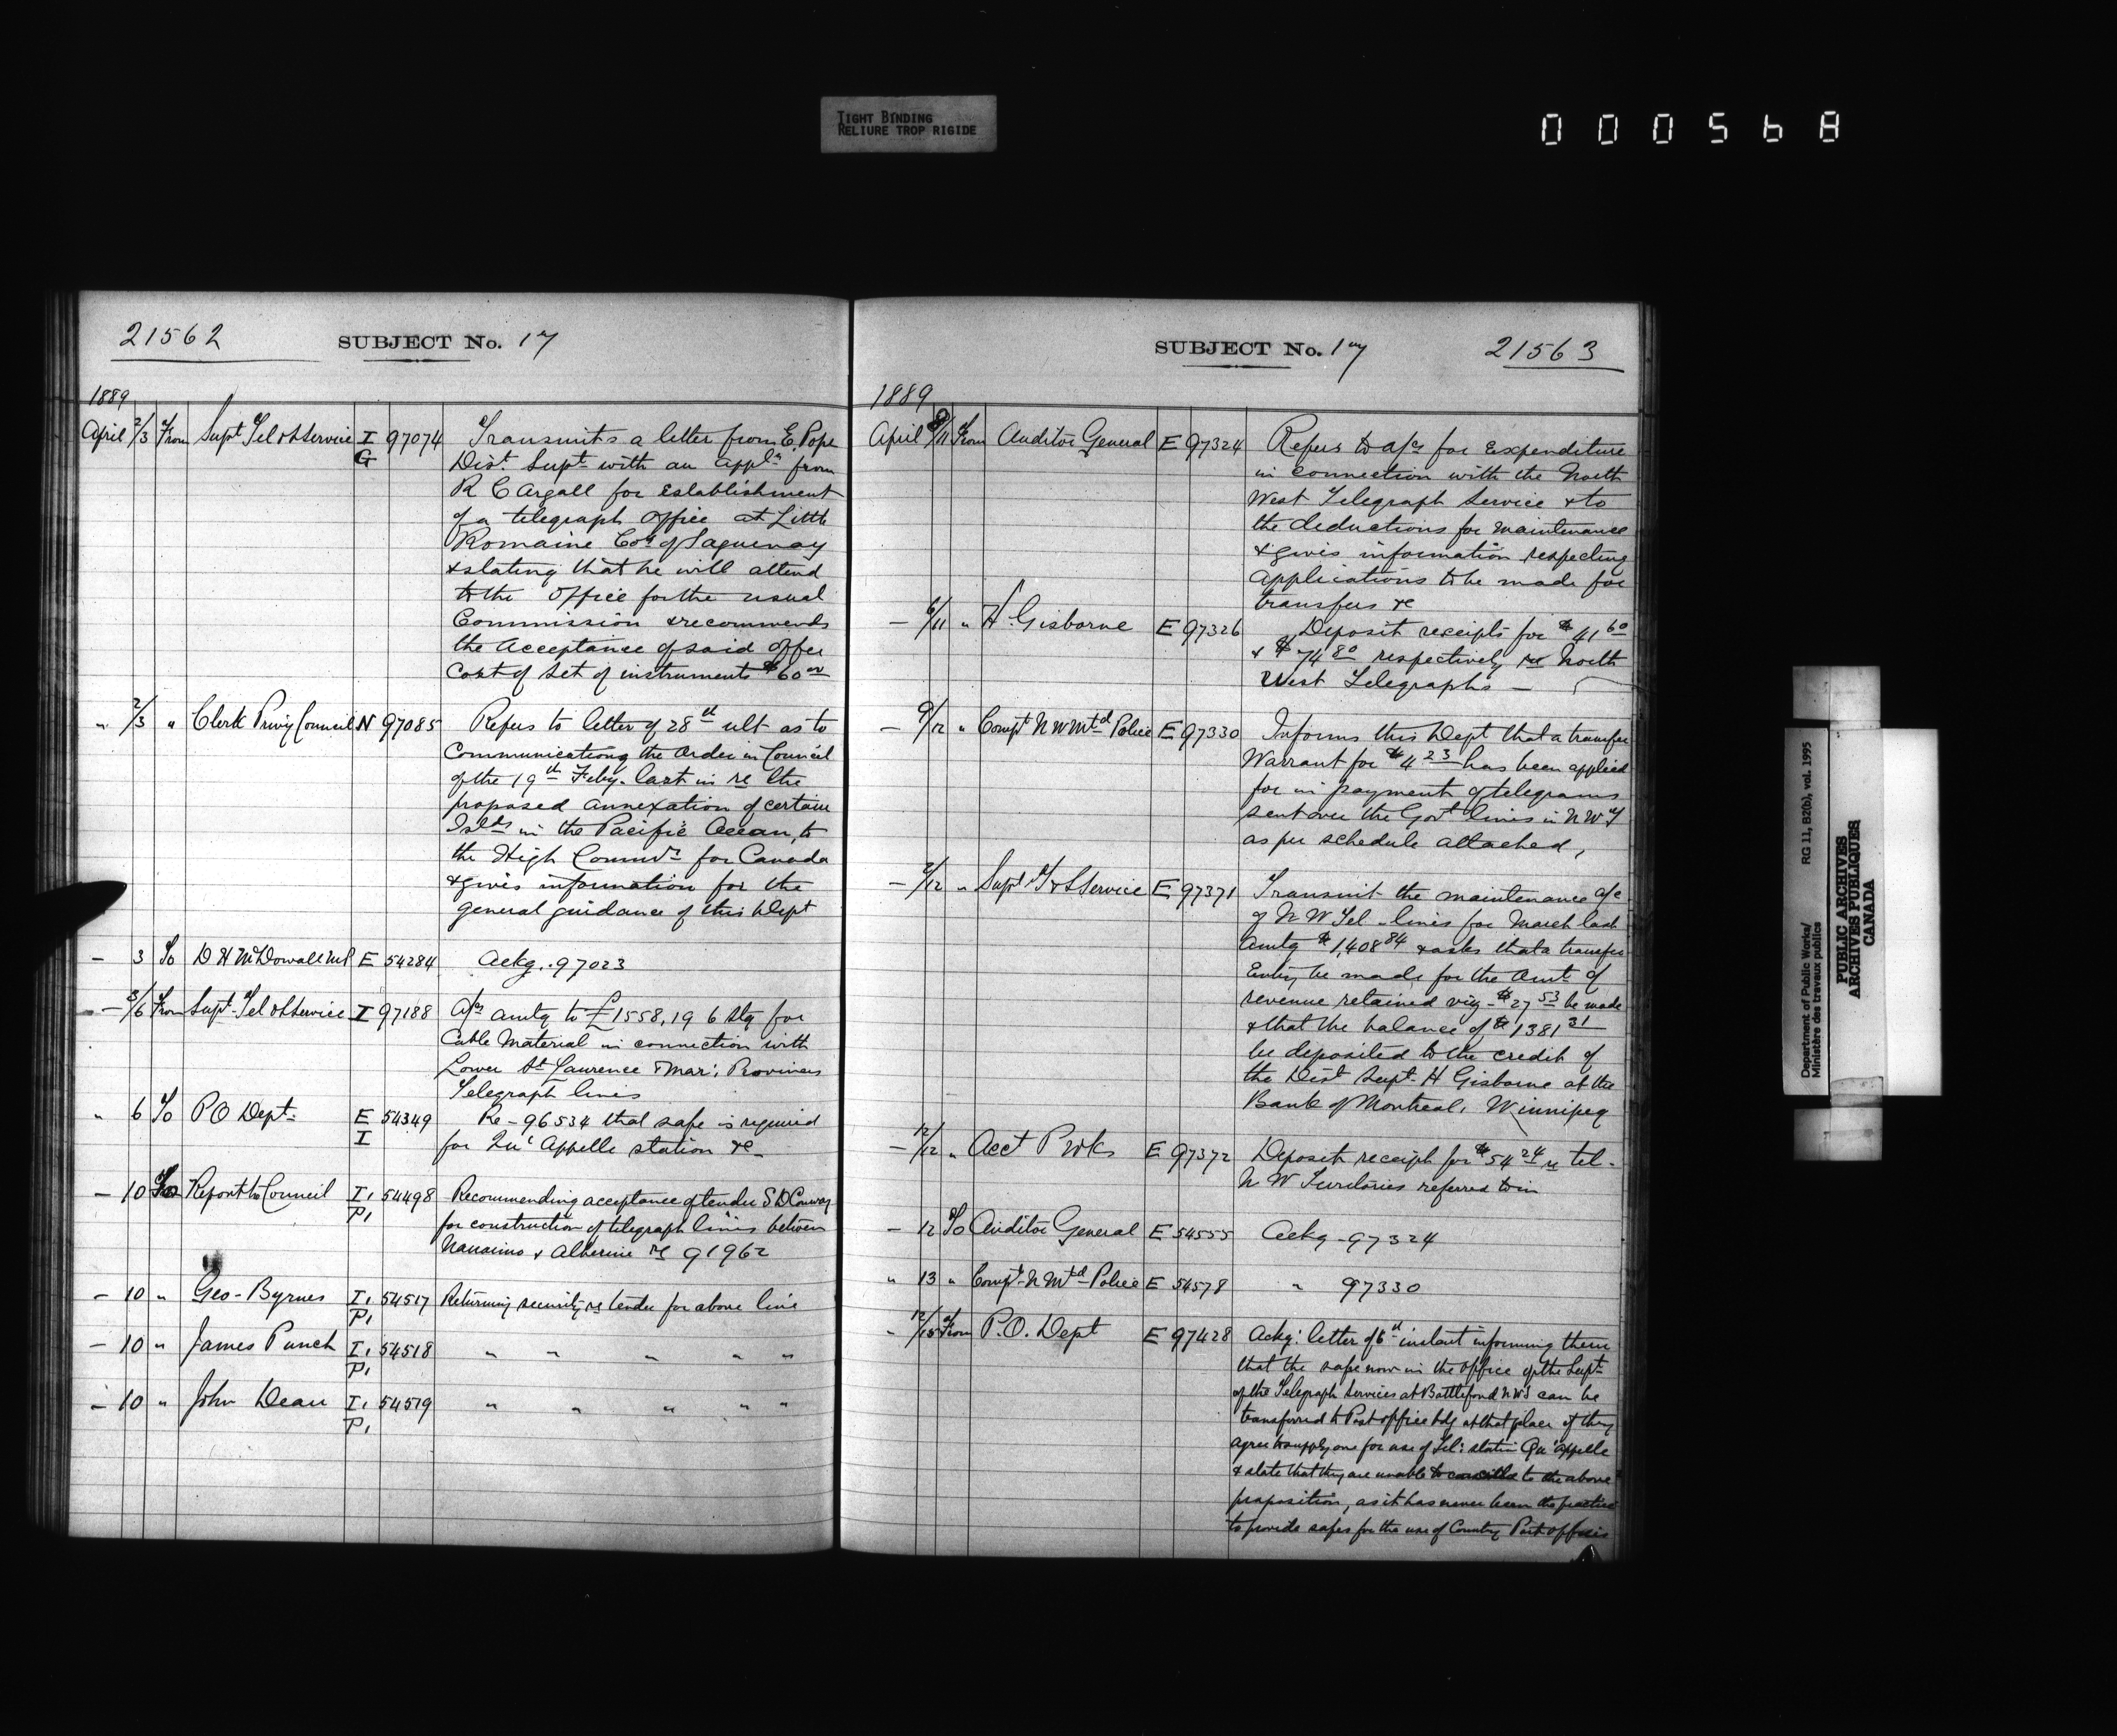 TIGHT BINDING
RELIURE TROP RIGIDE
000568
21562
SUBJECT No. 17
1889
April 2/3 From Supt Tel & S Service I G 97074 Transmits a letter from E. Pope
Dist. Supt with an appln from
R C Argall for establishment
of a telegraph office at Little
Romaine Coy of Saguenay
& stating that he will attend
to the office for the usual
Commission & recommends
the acceptance of said offer
Cost of set of instruments $60 00
" 2/3 " Clerk Privy Council N 97085 Refers to letter of 28th ult as to
communicating the Order in Council
of the 19th Feby. last in re the
proposed annexation of certain
Islds in the Pacific Ocean, to
the High Commr for Canada
& gives information for the
general guidance of this Dept
- 3 To D H McDowall MP E 54284 Ackg. 97023
- 3/6 From Supt Tel & S Service I 97188 A/cs amtg to £1558,19 6 Stg for
Cable Material in connection with
Lower St Lawrence & Mar: Provinces
Telegraph lines
" 6 To P O Dept E I 54349 Re - 96534 that safe is required
for Qu' Appelle station &c -
- 10 To Report to Council I, P, 54498 Recommending acceptance of tender S D Conway
for construction of telegraph lines between
Nanaimo & Alberine re 91962
- 10 " Geo - Byrnes I, P, 54517 Returning security re tender for above line
- 10 " James Punch I, P, 54518 " " " " "
- 10 " John Dean I, P, 54519 " " " " "
SUBJECT No. 17
21563
1889
April 8/11 From Auditor General E 97324 Refers to a/cs for Expenditure
in connection with the North
West Telegraph Service & to
the deductions for maintenance
& gives information respecting
applications to be made for
transfers &c
- 6/11 " H. Gisborne E 97326 Deposit receipts for $41 60
& $74 80 respectively re North
West Telegraphs -
- 9/12 " Compt N W Mtd Police E 97330 Informs this Dept that a transfer
Warrant for $4 23 has been applied
for in payment of telegrams
sent over the Govt lines in N W T
as per schedule attached,
- 2/12 " Supt T & S Service E 97371 Transmit the maintenance a/c
of N W Tel - lines for March last
amtg $1,408 84 & asks that a transfer
Entry be made for the amt of
revenue retained viz - $27 53 be made
& that the balance of $1381 31
be deposited to the credit of
the Dist Supt - H Gisborne at the
Bank of Montreal, Winnipeg
- 12/12 " Acct P Wks E 97372 Deposit receipt for $54 24 re tel -
N W Territories referred to in
- 12 To Auditor General E 54555 Ackg - 97324
" 13 " Compt - N Mtd - Police E 54578 " 97330
" 12/15 From P. O. Dept E 97428 Ackg: letter of 6th instant informing them
that the safe now in the office of the Supt
of the Telegraph Services at Battleford NWT can be
transferred to Post office bdg at that place if they
agree to supply one for use of Tel: station Qu'appelle
& state that they are unable to to the above
proposition, as it has never been the practice
to provide safes for the use of Country Post offices
Department of Public Works/
Ministère des travaux publics
RG 11, B2(b), vol. 1995
PUBLIC ARCHIVES
ARCHIVES PUBLIQUES
CANADA